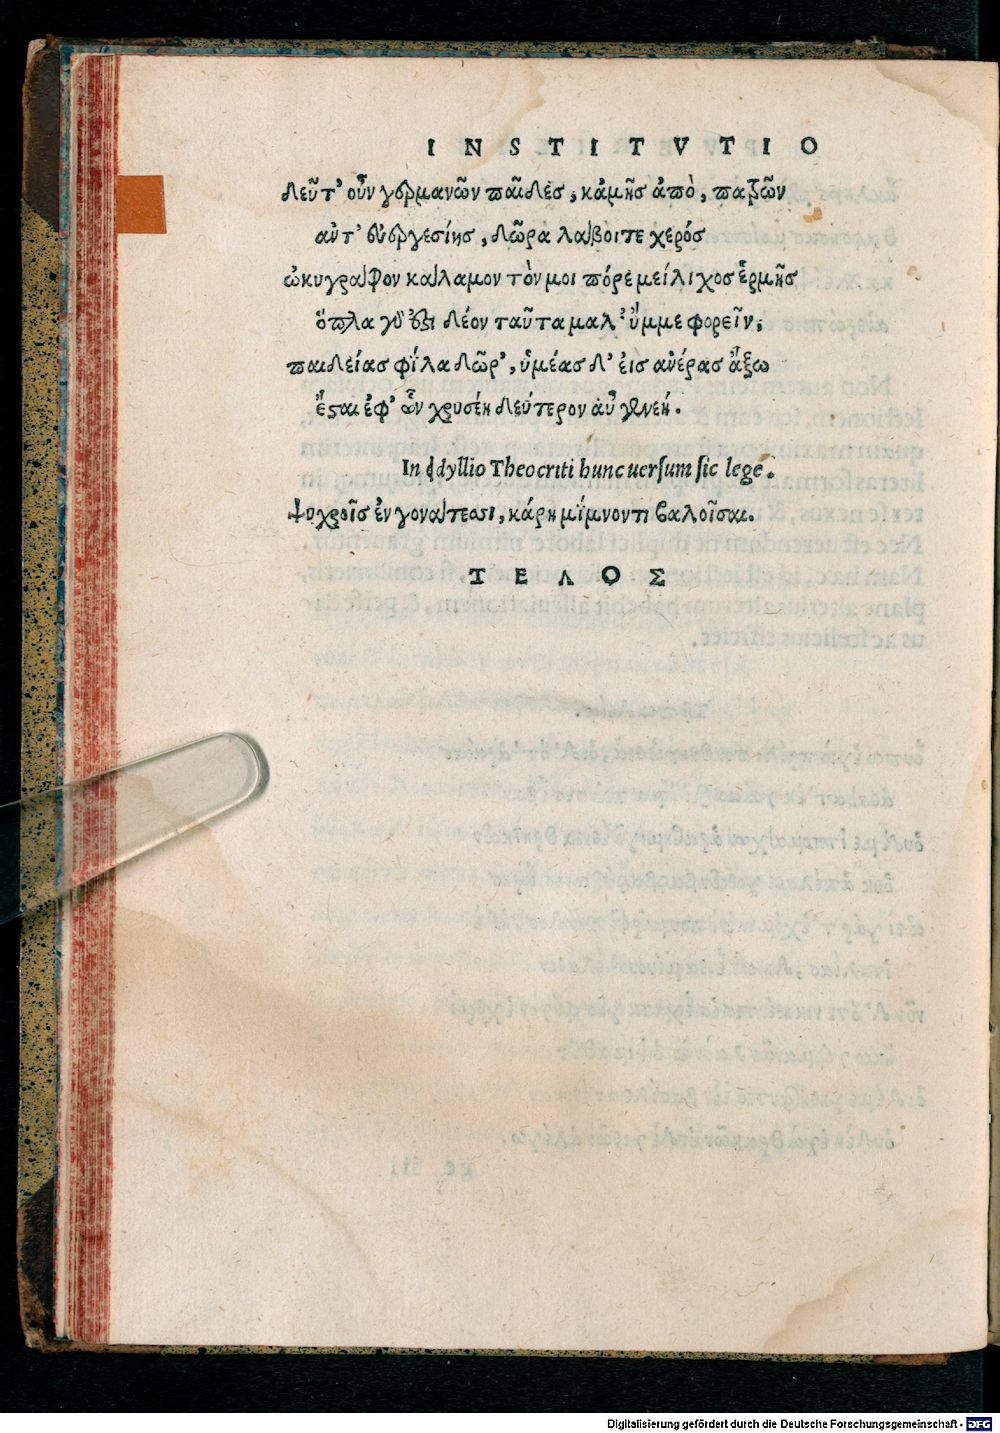 INSTITVTIO
δεῦτ' οὖν γερμανῶν παῖδες, κἀμῆς ἀπὸ, παζῶν
αὐτ' εὐεργεσίης, δῶρα λάβοιτε χερός
ὠκυγράφον κάλαμον τόν μοι πόρε μείλιχος ἑρμῆς
ὅπλα γὸ ἐστι δέον ταῦτα μαλ' ὔμμε φορεῖν,
παιδείας φίλα δῶρ', ὑμέας δ' εἰς ἀνέρας ἄξω
ἔσται ἐφ' ὧν χρυσέη δεύτερον αὖ γενεή.
In qdyllio Theocriti hunc uersum sic lege.
Ψυχροῖς ἐν γονάτεσσι, κάρη μίμνοντι βαλοῖσαι.
ΤΕΛΟΣ
Digitalisierung gefördert durch die Deutsche Forschungsgemeinschaft - DFG